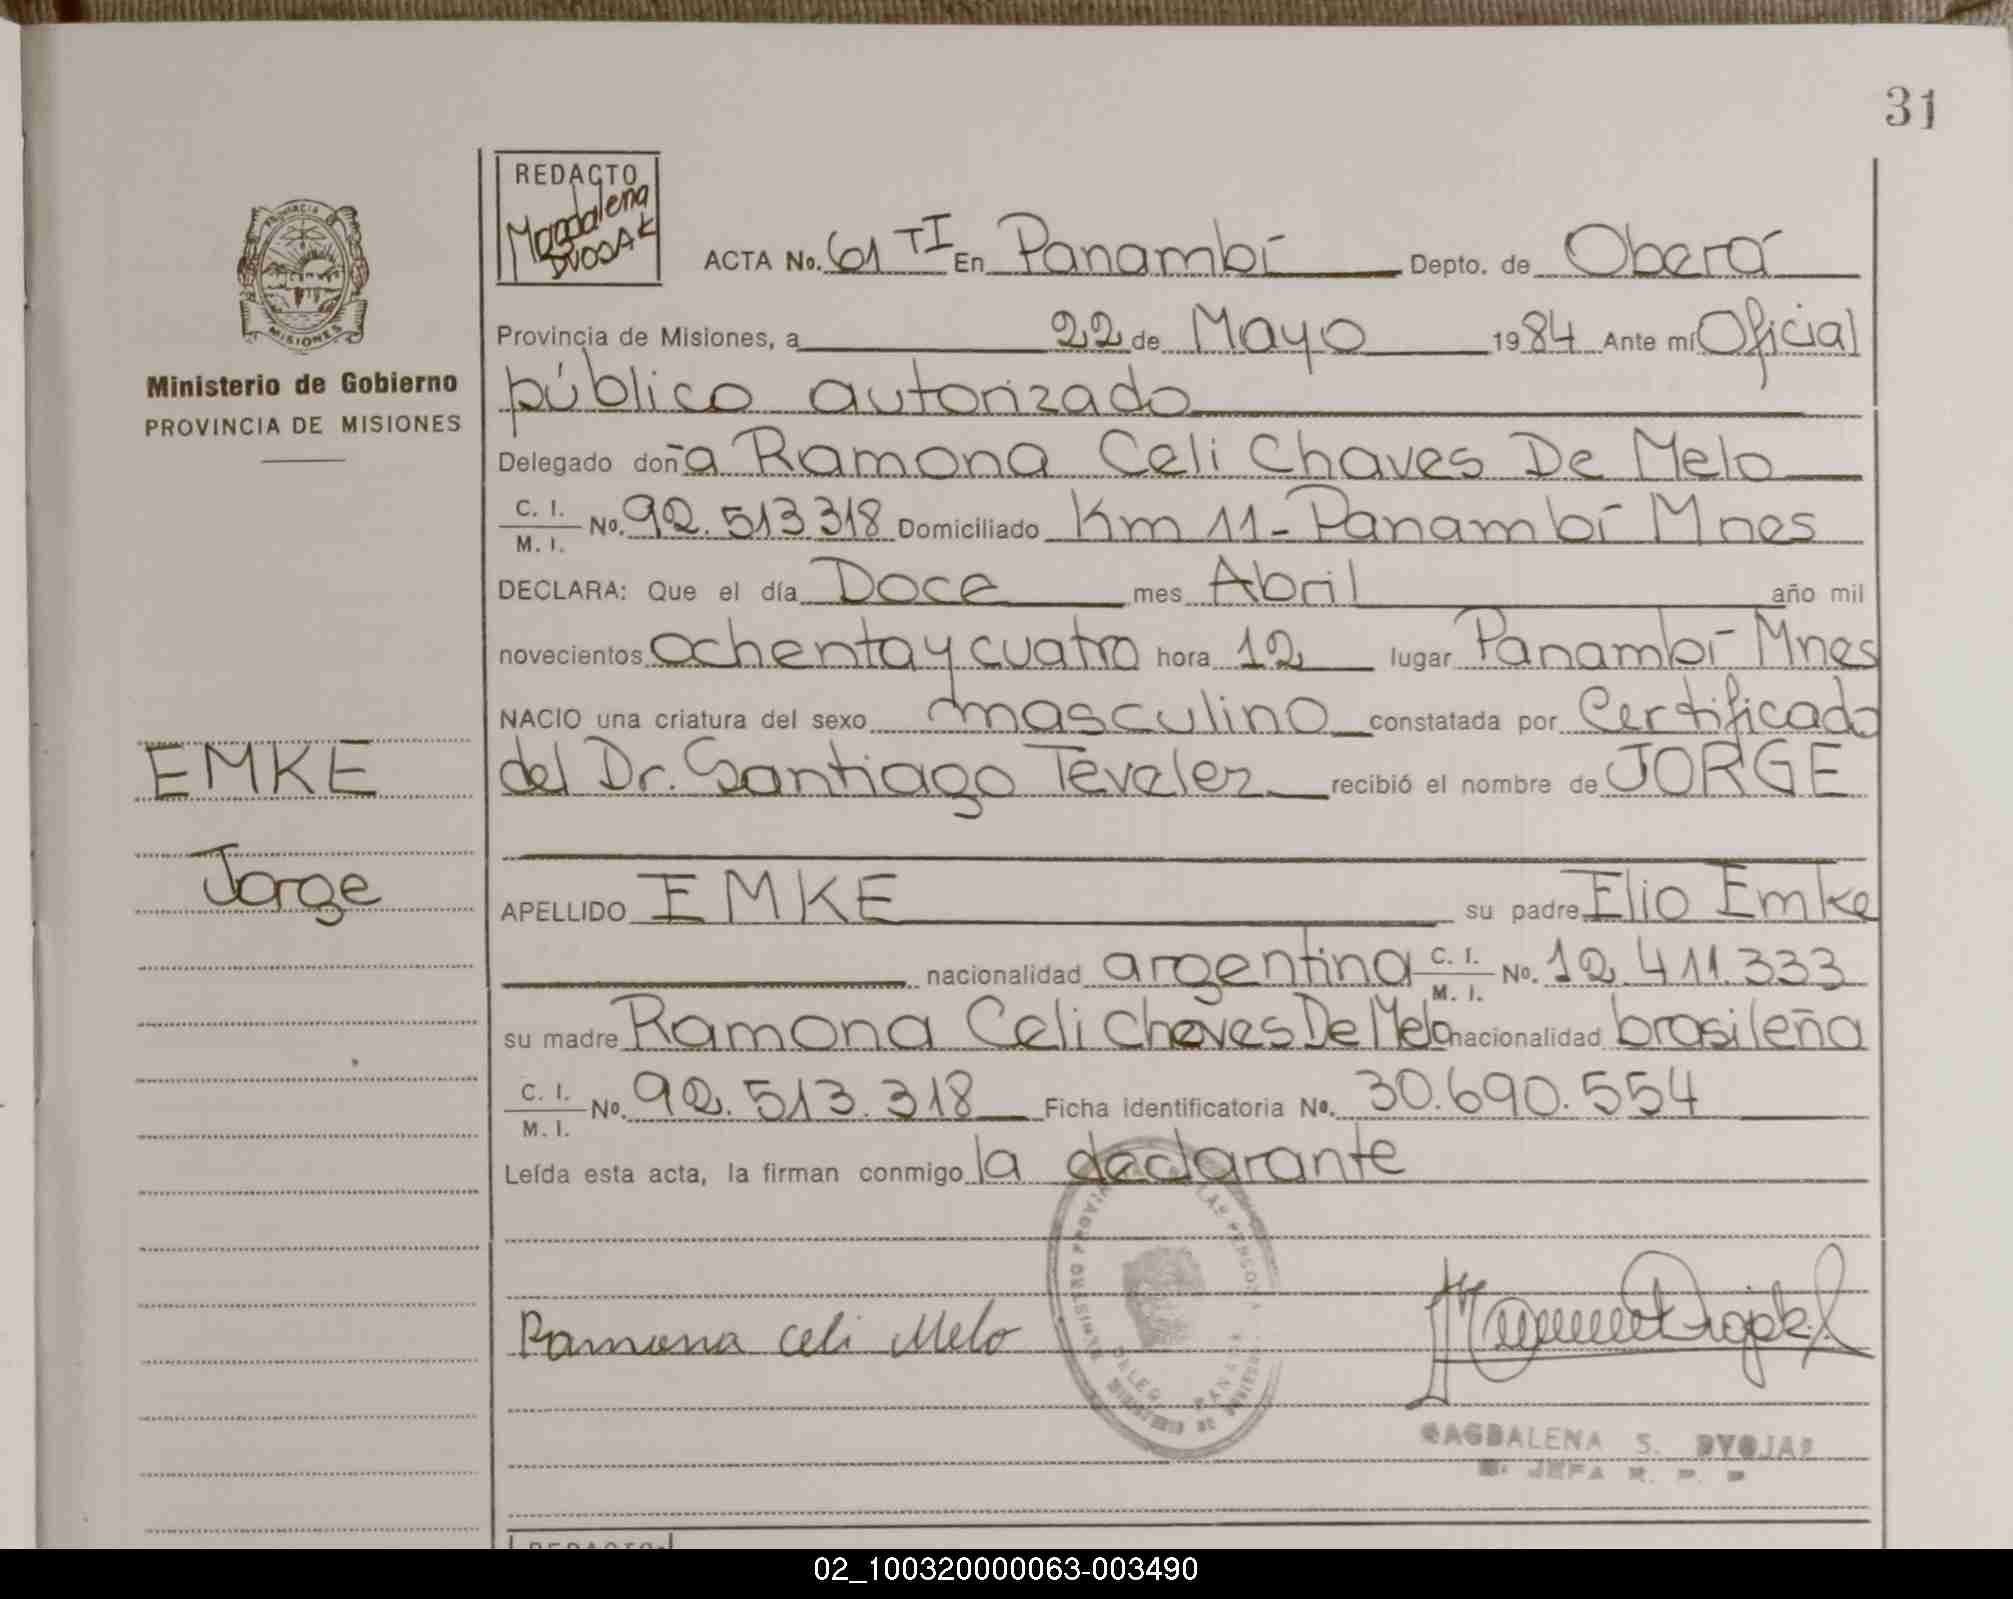 31
REDACTO
Magdalena
DVOJAK
PROVINCIA
MISIONES
Ministerio de Gobierno
PROVINCIA DE MISIONES
ACTA No. 61 TI En Panambí Depto. de Oberá
Provincia de Misiones, a 22 de Mayo 1984 Ante mí Oficial
público autorizado
Delegado doña Ramona Celi Chaves De Melo
C. I. / M. I. No. 92.513.318 Domiciliado Km 11 - Panambí Mnes
DECLARA: Que el día Doce mes Abril año mil
novecientos ochenta y cuatro hora 12 lugar Panambí - Mnes
NACIO una criatura del sexo masculino constatada por Certificado
del Dr. Santiago Tévelez recibió el nombre de JORGE
EMKE
Jorge
APELLIDO EMKE su padre Elio Emke
nacionalidad argentina C. I. / M. I. No. 12.411.333
su madre Ramona Celi Chaves De Melo nacionalidad brasileña
C. I. / M. I. No. 92.513.318 Ficha identificatoria No. 30.690.554
Leída esta acta, la firman conmigo la declarante
Ramona Celi Melo
MAGDALENA S. DVOJAK
JEFA R. P. P
REDACTO
02_100320000063-003490